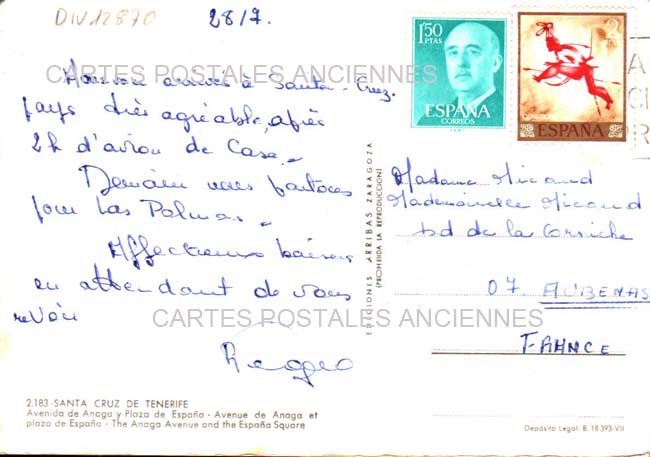 DIV12870
28/7.
CARTES POSTALES ANCIENNES
arrivés à Santa-Cruz.
pays très agréable, après
2h d'avion de Casa.
Demain nous partons
pour Las Palmas.
Affectueux baisers
en attendant de vous
revoir
CARTES POSTALES ANCIENNES
2.183-SANTA CRUZ DE TENERIFE
Avenida de Anaga y Plaza de España - Avenue de Anaga et
plaza de España - The Anaga Avenue and the España Square
EDICIONES ARRIBAS ZARAGOZA
(PROHIBIDA LA REPRODUCCION)
1'50
PTAS
ESPAÑA
CORREOS
2
ESPAÑA
Madame Micand
Mademoiselle Micand
bd de la Corniche
07 AUBENAS
FRANCE
Depósito Legal: B. 18.393-VII